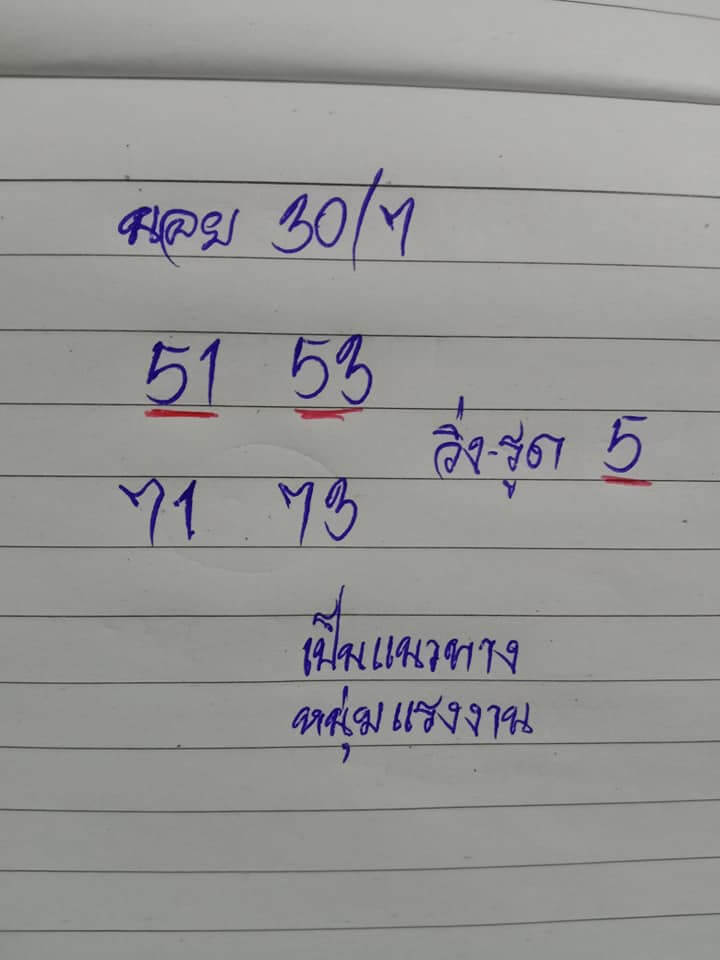 นลอย 30/7
51 53
วิ่ง-รูด 5
71 73
เป็นแนวทาง
หนุ่มแรงงาน